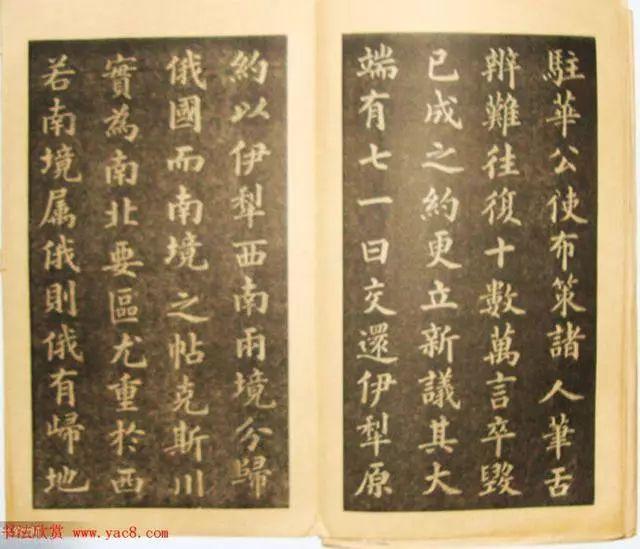 駐華公使布策諸人筆舌
辨難往復十數萬言卒毀
已成之約更立新議其大
端有七一曰交還伊犁原
約以伊犁西南兩境分歸
俄國而南境之帖克斯川
實為南北要區尤重於西
若南境属俄則俄有歸地
书法欣赏 www.yac8.com